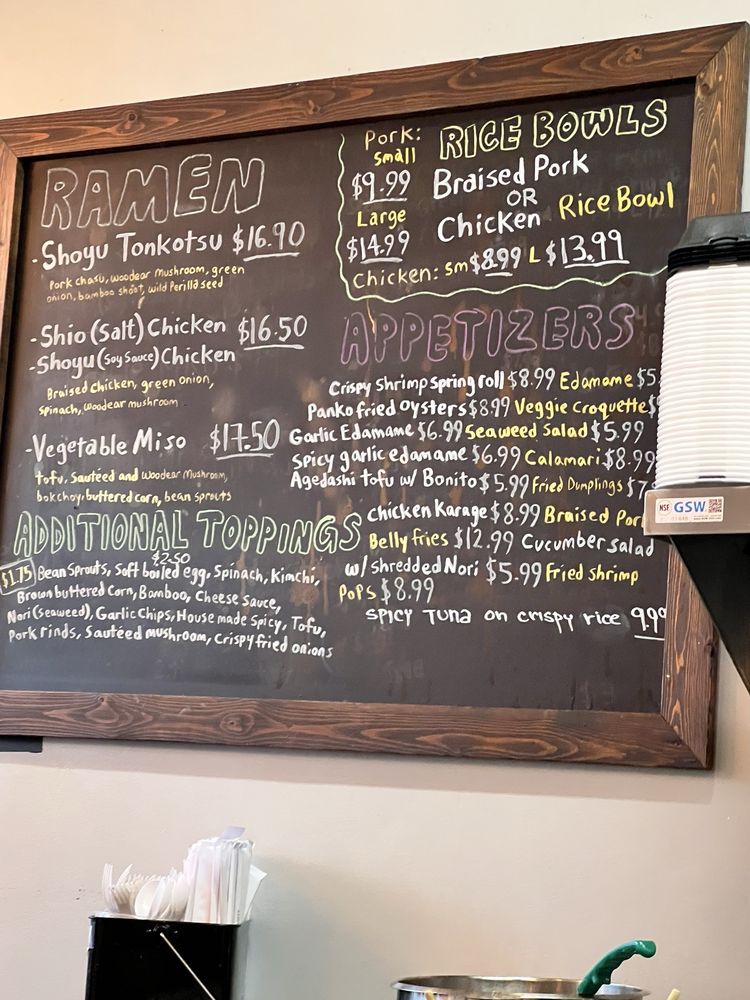 RAMEN
- Shoyu Tonkotsu $16.90
Pork chasu, woodear mushroom, green
onion, bamboo shoot, wild Perilla seed
- Shio (Salt) Chicken $16.50
- Shoyu (Soy Sauce) Chicken
Braised Chicken, green onion,
Spinach, woodear mushroom
- Vegetable Miso $17.50
tofu, Sautéed and woodear Mushroom,
bokchoy, buttered corn, bean sprouts
ADDITIONAL TOPPINGS
$2.50
$1.75 Bean Sprouts, Soft boiled egg, Spinach, Kimchi,
Brown buttered Corn, Bamboo, Cheese Sauce,
Nori (Seaweed), Garlic Chips, House made Spicy, Tofu,
Pork rinds, Sautéed mushroom, Crispy fried onions
RICE BOWLS
Pork:
Small
$9.99
Large
$14.99
Braised Pork
OR
Chicken Rice Bowl
Chicken: Sm $8.99 L $13.99
APPETIZERS
Crispy Shrimp Spring roll $8.99 Edamame $5
Panko fried Oysters $8.99 Veggie Croquette $
Garlic Edamame $6.99 Seaweed Salad $5.99
Spicy garlic edamame $6.99 Calamari $8.99
Agedashi tofu w/ Bonito $5.99 Fried Dumplings $7
Chicken Karage $8.99 Braised Por
Belly fries $12.99 Cucumber salad
w/ shredded Nori $5.99 Fried shrimp
Pops $8.99
SPICY TUNA on crispy rice 9.99
NSF GSW